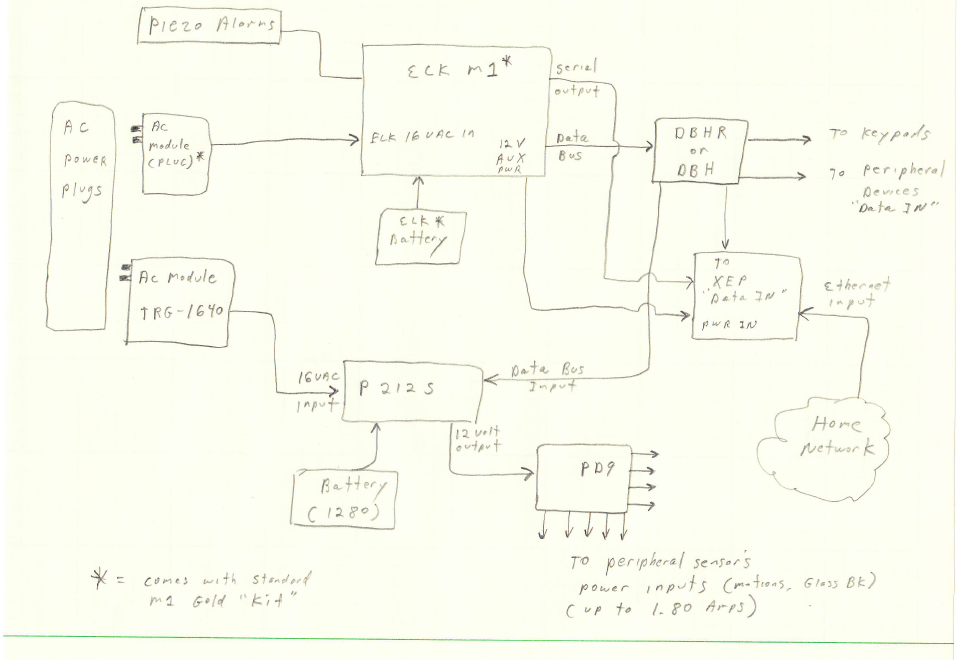 Piezo Alarms
ECK M1*
serial
output
AC
power
plugs
AC
module
(PLUG)*
ELK 16 VAC in
12 V
AUX
PWR
Data
Bus
DBHR
or
DBH
To Keypads
To peripheral
Devices
"Data IN"
ELK *
Battery
AC Module
TRG-1640
TO
XEP
"Data IN"
PWR IN
Ethernet
input
16VAC
input
P 212 S
Data Bus
Input
12 volt
output
Home
Network
Battery
(1280)
PD9
TO peripheral sensor's
power inputs (motions, Glass BK)
(up to 1.80 Amps)
* = comes with standard
M1 Gold "Kit"